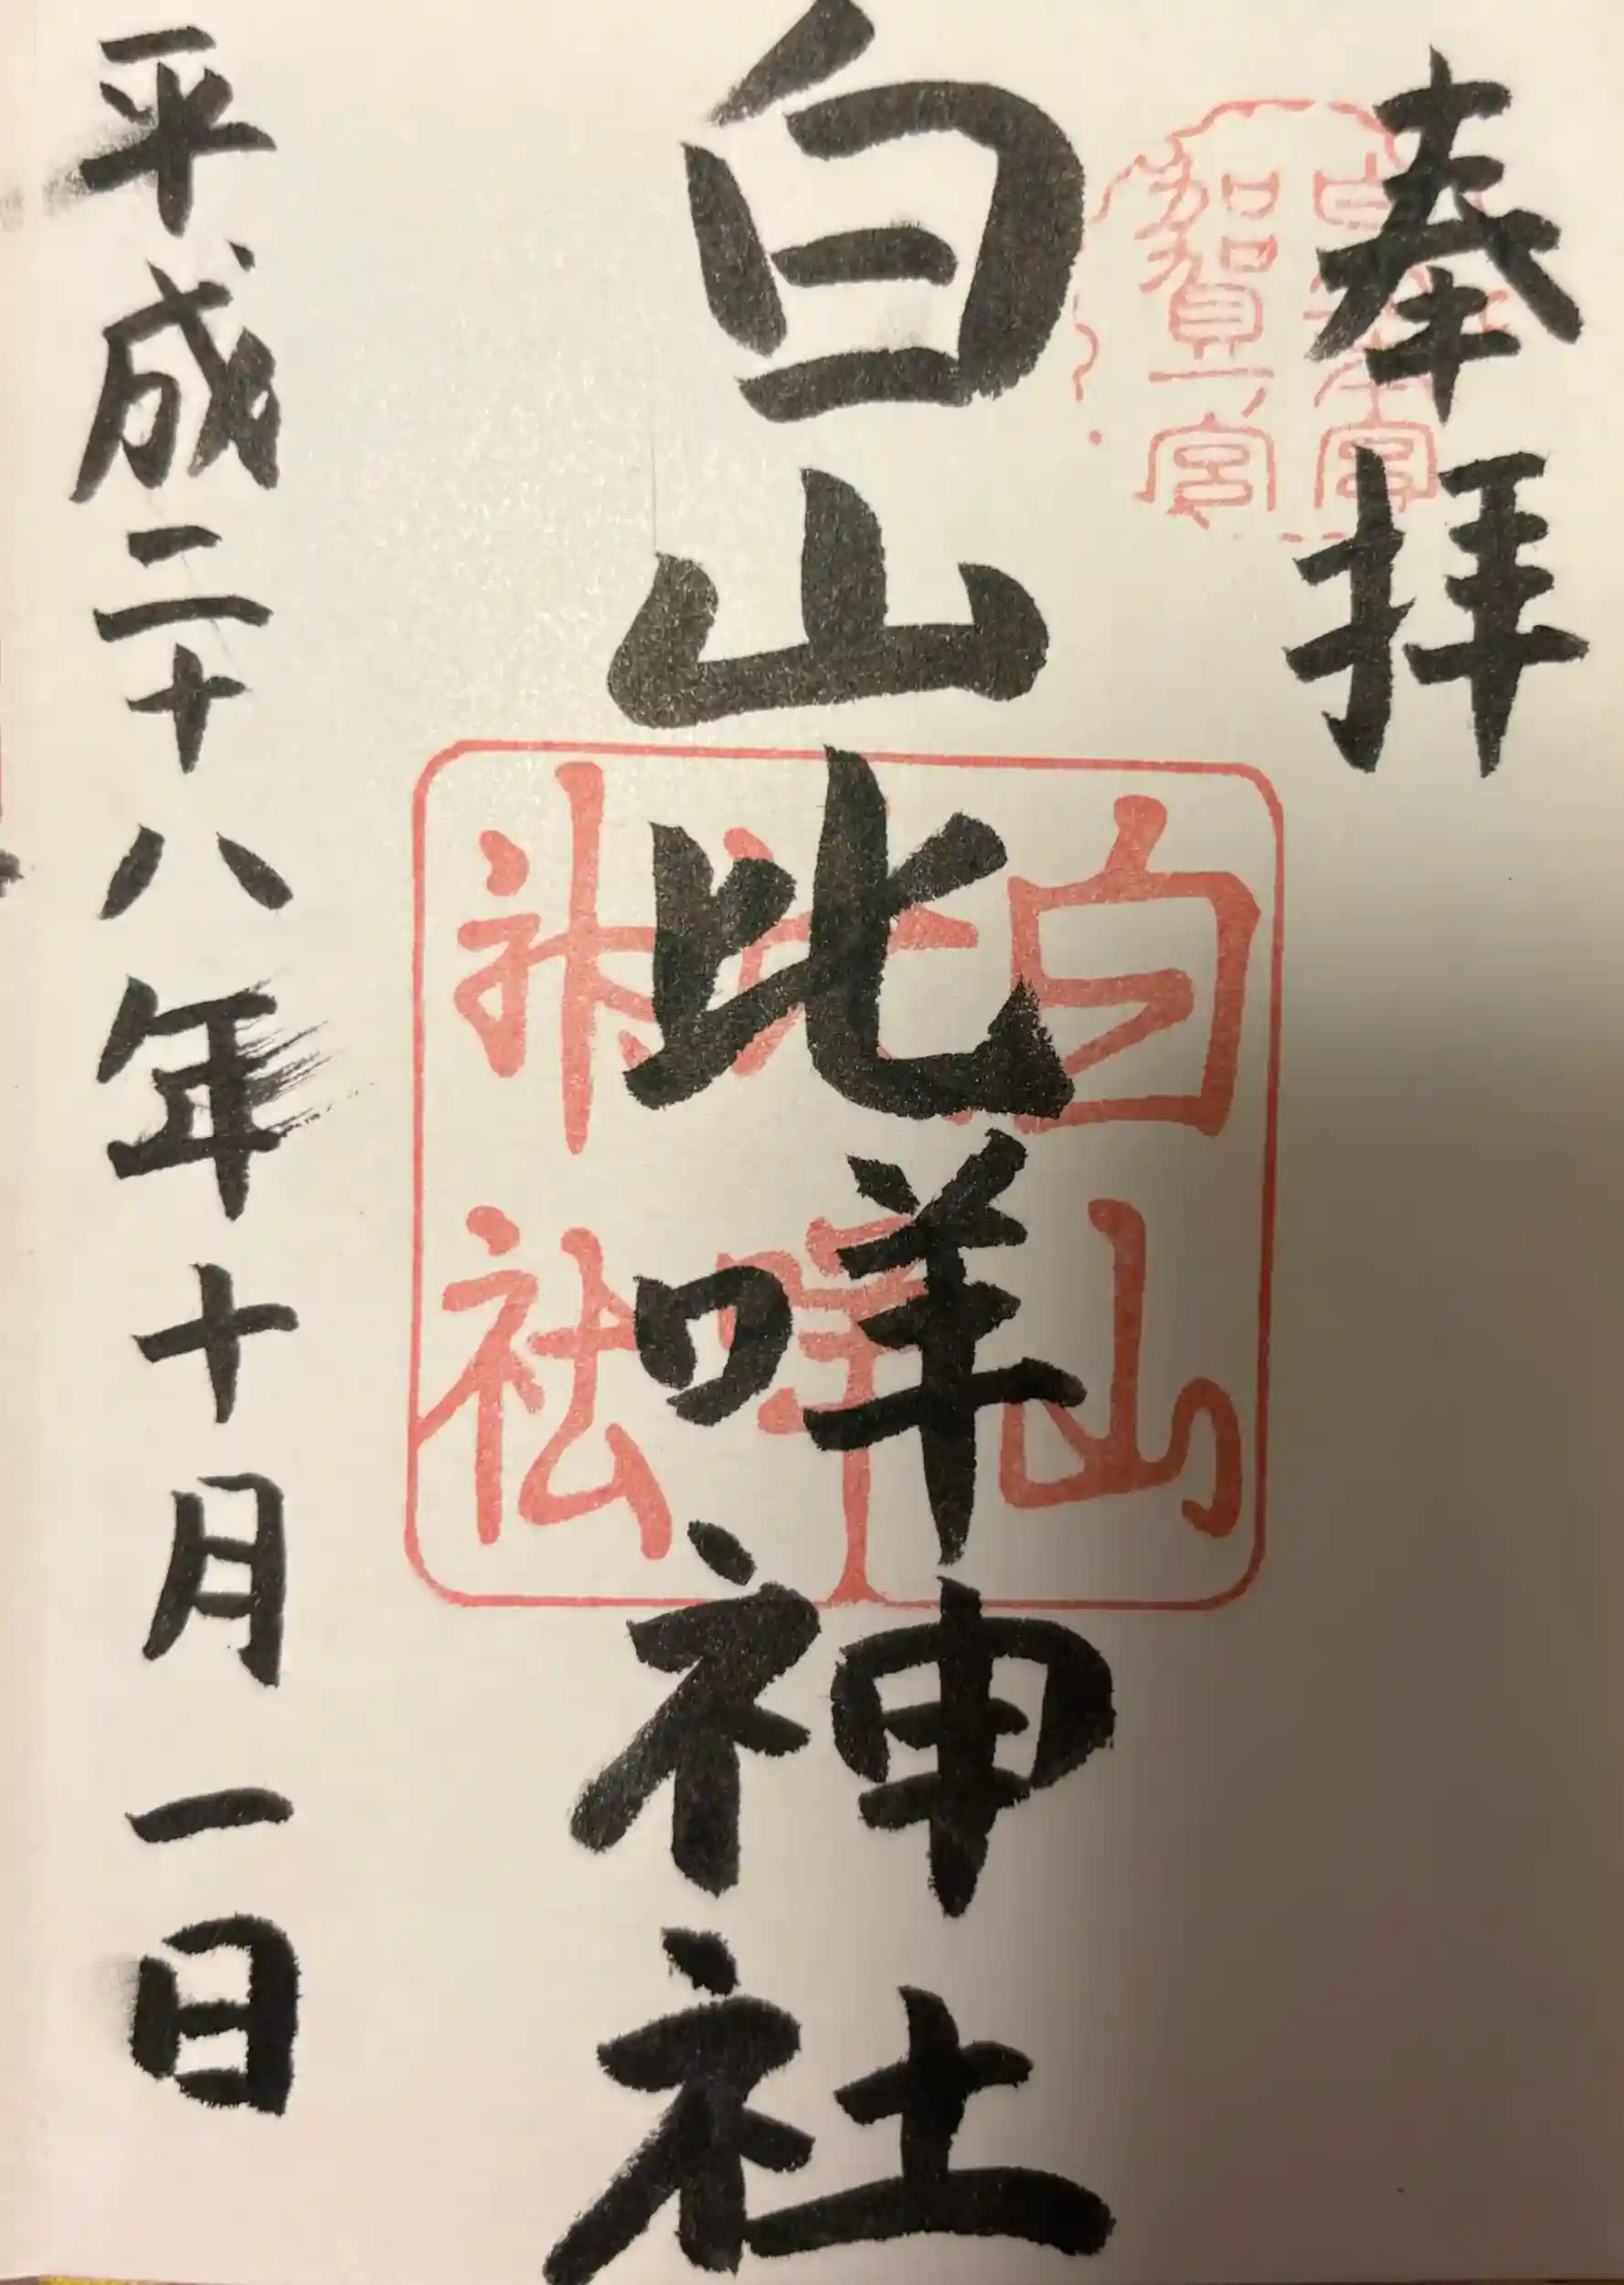 奉拝
白山比咩神社
平成二十八年十月一日
白山
比咩
神社
加賀一宮